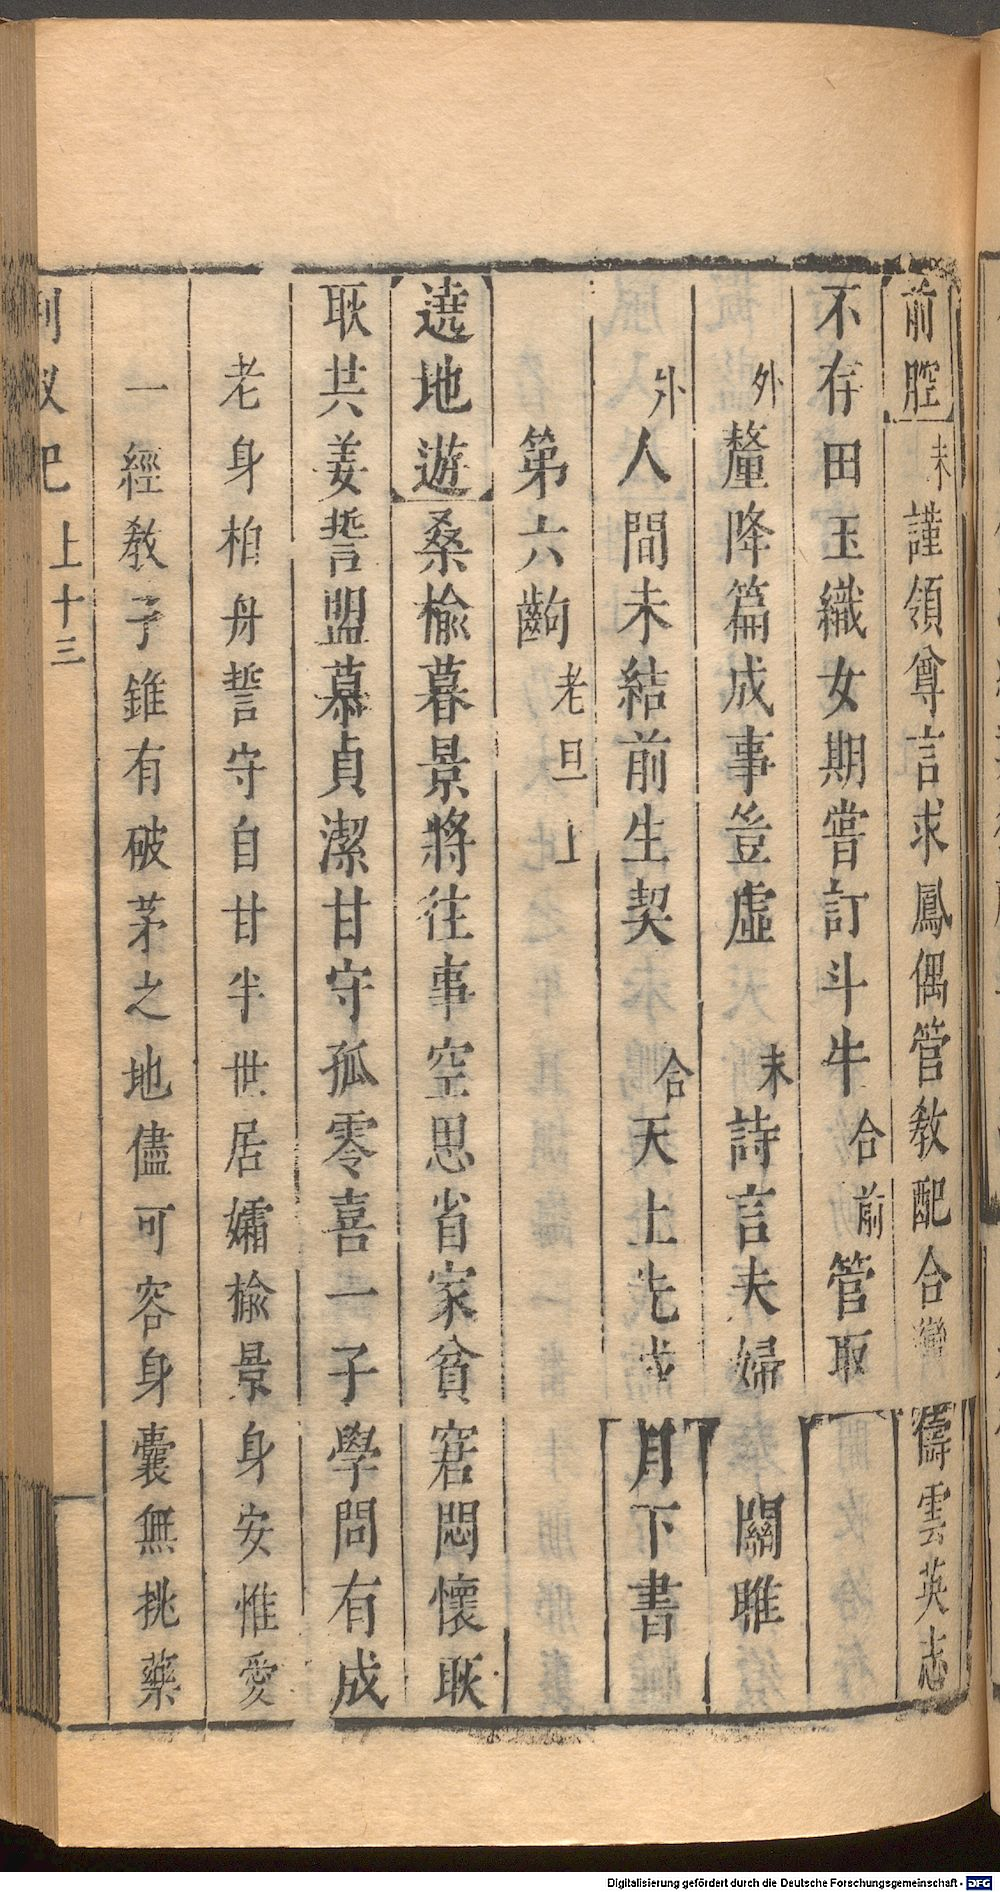 前腔末謹領尊言求鳳偶管敎配合鸞儔雲英志
不存田玉織女期嘗訂斗牛合前管取
外釐降篇成事豈虛末詩言夫婦關雎
外人間未結前生契合天上先成月下書
第六齣老旦上
遶地遊桑榆暮景將往事空思省家貧窘悶懷耿
耿共姜誓盟慕貞潔甘守孤零喜一子學問有成
老身柏舟誓守自甘半世居孀榆景身安惟愛
一經敎子雖有破茅之地儘可容身囊無挑藥
荆釵记 上十三
Digitalisierung gefördert durch die Deutsche Forschungsgemeinschaft - DFG